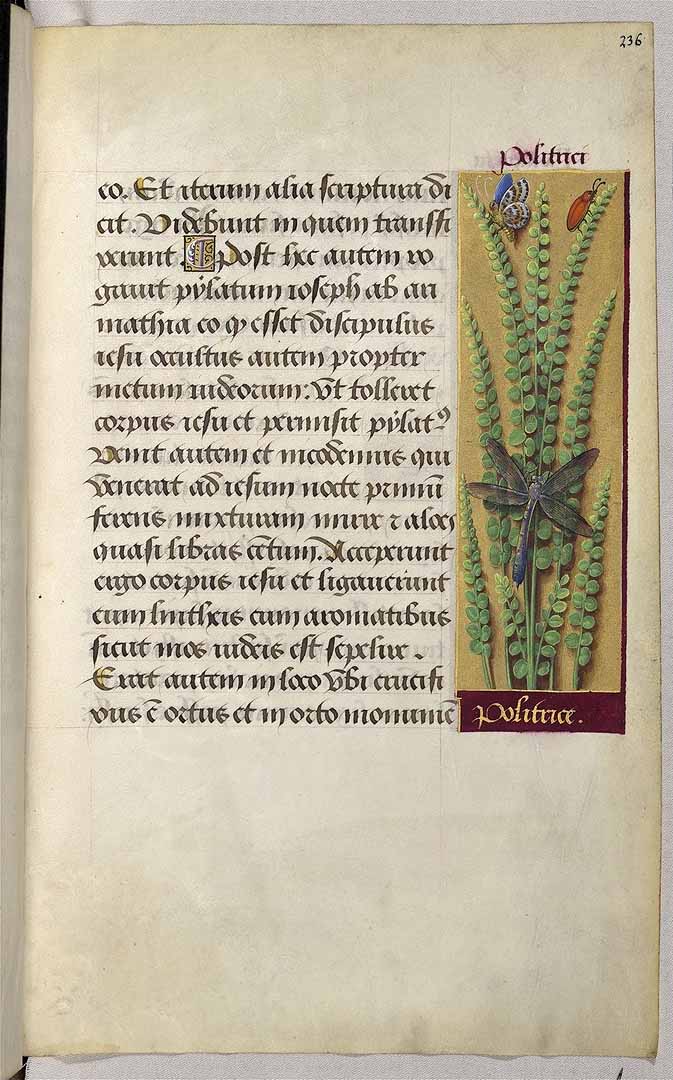 236
politrici
co. Et iterum alia scriptura di
cit. Videbunt in quem transfi
xerunt. Post hec autem ro
gauit pylatum ioseph ab ari
mathia eo qͥ esset discipulus
iesu occultus autem propter
metum iudeorum: vt tolleret
corpus iesu et permisit pylatꝰ
Venit autem et nicodemus qui
venerat ad iesum nocte primū
ferens mixturam mirre ⁊ aloes
quasi libras cētum. Acceperunt
ergo corpus iesu et ligauerunt
eum lintheis cum aromatibus
sicut mos iudeis est sepelire.
Erat autem in loco vbi crucifi
xus ē ortus et in orto monumē
politrice.